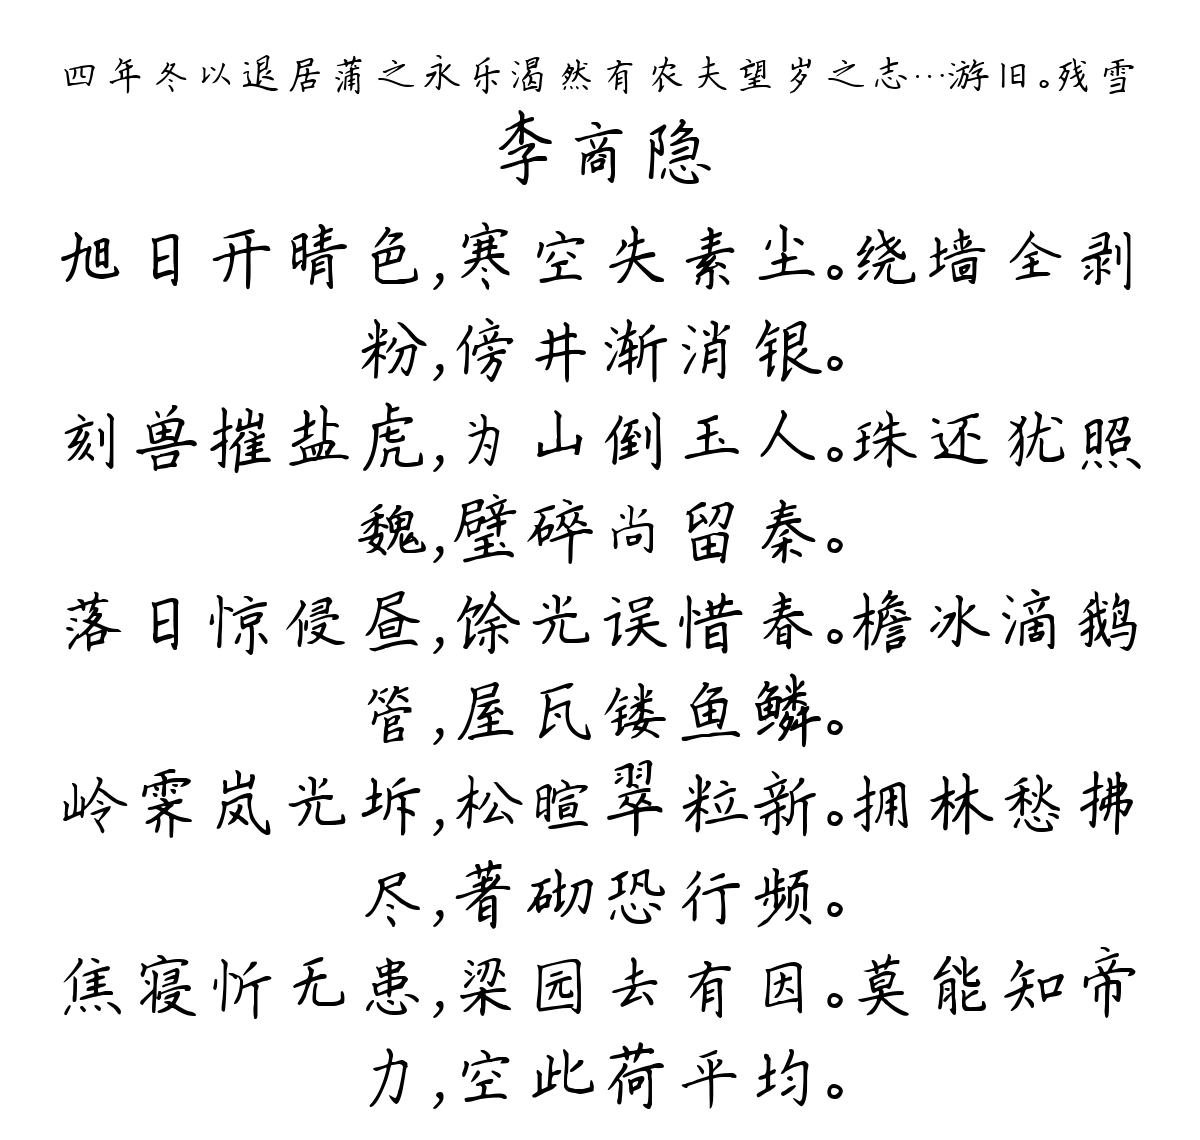 四年冬以退居蒲之永乐渴然有农夫望岁之志…游旧。残雪
李商隐
旭日开晴色,寒空失素尘。绕墙全剥
粉,傍井渐消银。
刻兽摧盐虎,为山倒玉人。珠还犹照
魏,璧碎尚留秦。
落日惊侵昼,馀光误惜春。檐冰滴鹅
管,屋瓦镂鱼鳞。
岭霁岚光坼,松暄翠粒新。拥林愁拂
尽,著砌恐行频。
焦寝忻无患,梁园去有因。莫能知帝
力,空此荷平均。